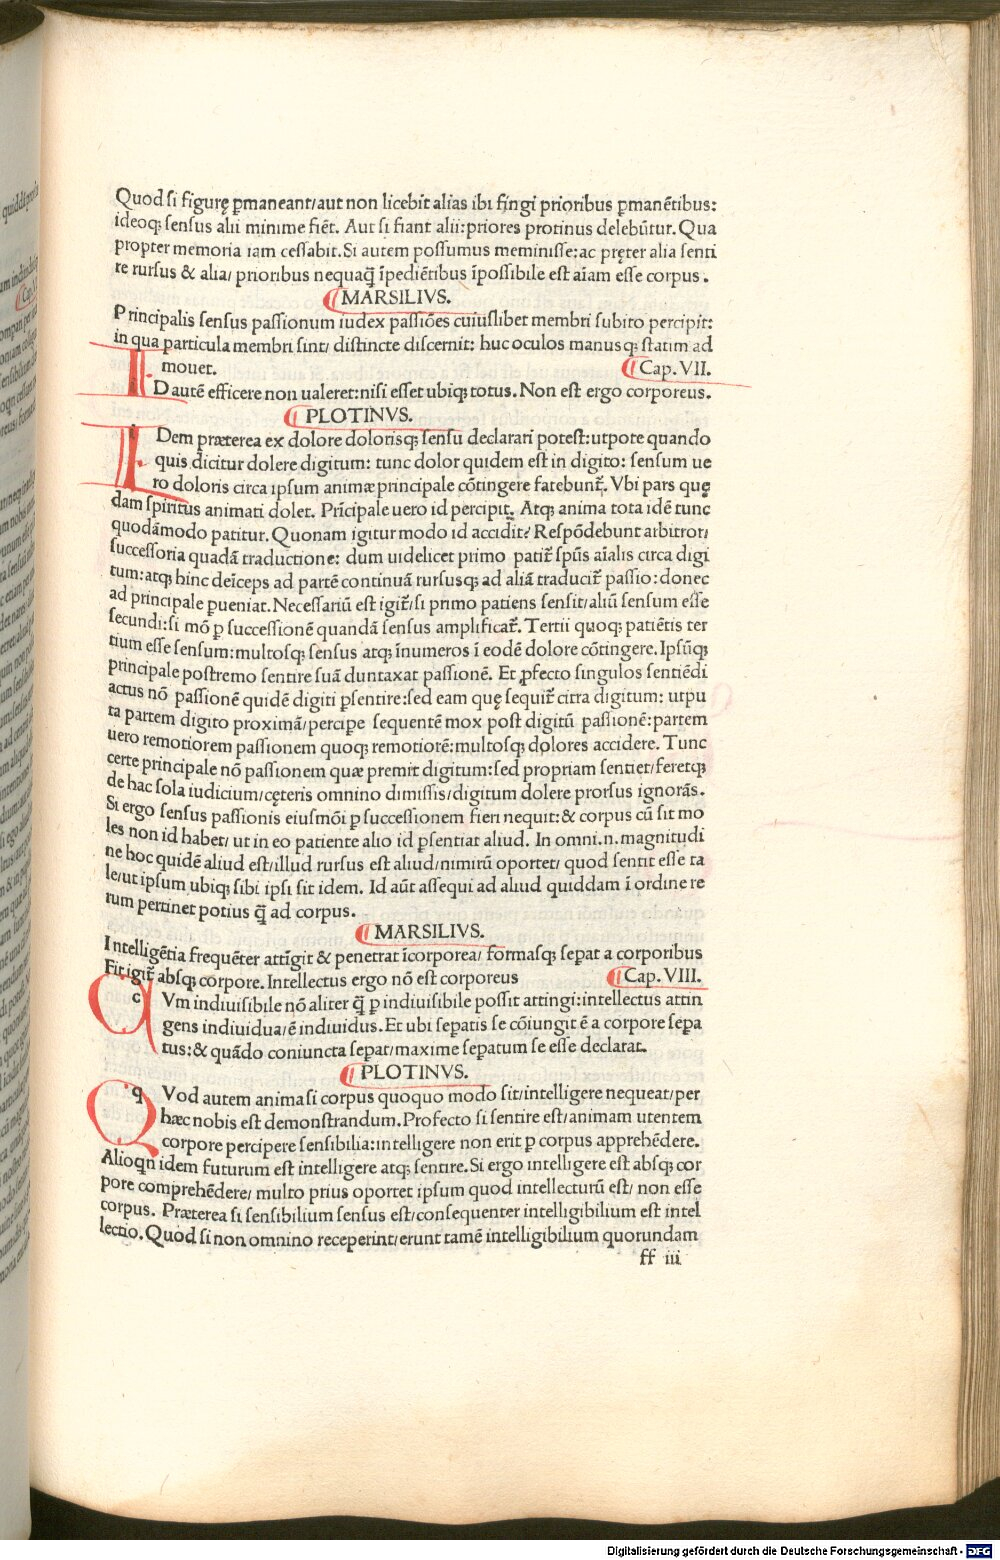 Quod si figurę ꝑmaneant/aut non licebit alias ibi fingi prioribus ꝑmanẽtibus:
ideoqꝫ sensus alii minime fiẽt. Aut si fiant alii: priores protinus delebũtur. Qua
propter memoria iam cessabit. Si autem possumus meminisse: ac pręter alia senti
re rursus & alia/ prioribus nequaq̃ ĩpediẽtibus ĩpossibile est aĩam esse corpus.
MARSILIVS.
Principalis sensus passionum iudex passiões cuiuslibet membri subito percipit:
in qua particula membri sint/ distincte discernit: huc oculos manusqꝫ statim ad
mouet.
Cap. VII.
I Dautẽ efficere non ualeret: nisi esset ubiqꝫ totus. Non est ergo corporeus.
PLOTINVS.
I Dem præterea ex dolore dolorisqꝫ sensu declarari potest: utpote quando
quis dicitur dolere digitum: tunc dolor quidem est in digito: sensum ue
ro doloris circa ipsum animæ principale cõtingere fatebunt᷑. Vbi pars quę
dam spiritus animati dolet. Prĩcipale uero id percipit. Atqꝫ anima tota idẽ tunc
quodãmodo patitur. Quonam igitur modo id accidit? Respõdebunt arbitror/
successoria quadã traductione: dum uidelicet primo patit᷑ sp̃us aĩalis circa digi
tum: atqꝫ hinc deĩceps ad partẽ continuã rursusqꝫ ad aliã traducit᷑ passio: donec
ad principale ꝑueniat. Necessariũ est igit᷑/ si primo patiens sensit/ aliũ sensum esse
secundi: si mõ ꝑ successionẽ quandã sensus amplificat᷑. Tertii quoqꝫ patiẽtis ter
tium esse sensum: multosqꝫ sensus atqꝫ ĩnumeros ĩ eodẽ dolore cõtingere. Ipsũqꝫ
principale postremo sentire suã duntaxat passionẽ. Et ꝓfecto singulos sentiẽdi
actus nõ passionẽ quidẽ digiti p̱sentire: sed eam quę sequit᷑ citra digitum: utpu
ta partem digito proximã/ percipe sequentẽ mox post digitũ passionẽ: partem
uero remotiorem passionem quoqꝫ remotiorẽ: multosqꝫ dolores accidere. Tunc
certe principale nõ passionem quæ premit digitum: sed propriam sentiet/ feretqꝫ
de hac sola iudicium/ cęteris omnino dimissis/ digitum dolere prorsus ignorãs.
Si ergo sensus passionis eiusmõi ꝑ successionem fieri nequit: & corpus cũ sit mo
les non id habet/ ut in eo patiente alio id p̱sentiat aliud. In omni .n. magnitudi
ne hoc quidẽ aliud est/ illud rursus est aliud/ nimirũ oportet/ quod sentit esse ta
le/ ut ipsum ubiqꝫ sibi ipsi sit idem. Id aũt assequi ad aliud quiddam ĩ ordine re
rum pertinet potius q̃ ad corpus.
MARSILIVS.
Intelligẽtia frequẽter attĩgit & penetrat ĩcorporea/ formasqꝫ seꝑat a corporibus
Fit igit᷑ absqꝫ corpore. Intellectus ergo nõ est corporeus
Cap. VIII.
c Vm indiuisibile nõ aliter q̃ ꝑ indiuisibile possit attingi: intellectus attin
gens indiuidua/ ẽ indiuidus. Et ubi seꝑatis se cõiungit ẽ a corpore seꝑa
tus: & quãdo coniuncta seꝑat/ maxime seꝑatum se esse declarat.
PLOTINVS.
q Vod autem anima si corpus quoquo modo sit/ intelligere nequeat/ per
hæc nobis est demonstrandum. Profecto si sentire est/ animam utentem
corpore percipere sensibilia: intelligere non erit ꝑ corpus apprehẽdere.
Alioqn idem futurum est intelligere atqꝫ sentire. Si ergo intelligere est absqꝫ cor
pore comprehẽdere/ multo prius oportet ipsum quod intellecturũ est/ non esse
corpus. Præterea si sensibilium sensus est/ consequenter intelligibilium est intel
lectio. Quod si non omnino receperint/ erunt tamẽ intelligibilium quorundam
ff iii
Digitalisierung gefördert durch die Deutsche Forschungsgemeinschaft - DFG